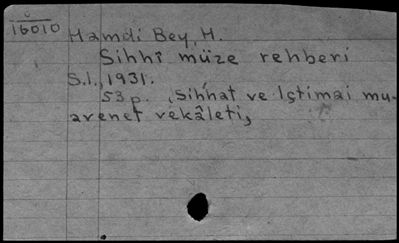 16010
Hamdi Bey, H.
Sihhî müze rehberi
S.l., 1931.
53 p. (Sihhat ve Içtimai mu-
avenet vekâleti)